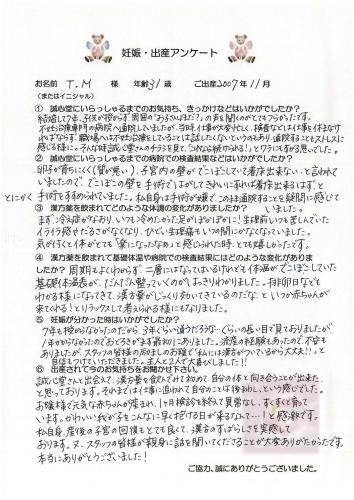 妊娠・出産アンケート
お名前 T.M 様 年齢31歳 ご出産2007年11月
(またはイニシャル)
① 誠心堂にいらっしゃるまでのお気持ち、きっかけなどはいかがでしたか?
結婚して7年、子供が授からず、周囲の"お子さんは?"の声を聞くのがとてもつらかったです。
不妊治療専門の病院へ通院していましたが、当時、仕事が大変忙しく、検査などは仕事を休まなけ
ればならず、職場へは不妊治療をしていることは話したくないというのもあり、通院することもストレスに
感じる様に。そんな時誠心堂さんのチラシを見て、"これなら続けられる!"とワラにもすがる思いでした。
② 誠心堂にいらっしゃるまでの病院での検査結果などはいかがでしたか?
卵子が育ちにくく(質が悪い)、子宮内の壁がでこぼこしていて着床出来ない、と言われて
いましたので、でこぼこの壁を手術ではがしてきれいにすれば着床出来るはず、と
手術をすすめられていました。私自身は手術が嫌で、このまま通院することを疑問に感じて
いました。
とにかく
③ 漢方薬を飲まれてどのような体調の変化がありましたか?
まず、冷え症がなおり、いつも冷めたかった足がぽかぽかに!生理前いつも苦しんでいた
イライラ感やだるさがなくなり、ひどい生理痛もいつの間にかなくなっていました。
気がすくと体がとても"楽になったなぁ"と感じられた時、とても嬉しかったです。
④ 漢方薬を飲まれて基礎体温や病院での検査結果にはどのような変化がありま
したか? 周期もよくわからず、二層にはなってはいるけれどもの体温がでこぼこしていた
基礎体温表が、だんだん整っていくのが、はっきりわかりました。排卵日なども
わかる様になってきて、漢方薬がじっくり効いてきているのだな、といつか赤ちゃんが
来てくれる!とリラックスして考えられる様にもなりました。
⑤ 妊娠が分かった時はいかがでしたか?
7年も授からなかったのだから、3年くらい通うだろうな…くらいの長い目で見ておりましたが
1年かからなかったのでおどろきまず最初にありました。流産の経験もあったので、不安も
ありましたが、スタッフの皆様の励ましのお陰で"私には漢方がついているから大丈夫!"と
自信をつけていただきました。主人と2人で大喜びしました!!
⑥ 出産されて今のお気持ちをお聞かせ下さい。
誠心堂さんと出会えて、漢方薬を飲んでみて初めて、自分の体と向き合うことが出来た
と思っております。それまではただ仕事に追われて自分のことは後まわしという感じでした。
お陰様で元気な赤ちゃんが産まれ、1ヶ月検診を終えて異常なし、すくすく育って
います。かわいい我が子をこんなに早く抱ける日が来るなんて…!と感激です。
私自身、産後の子宮の回復もとても良くて、漢方のすばらしさを実感して
おります。又、スタッフの皆様が親身に話を聞いてくださることが大変ありがたかったです。
本当にありがとうございました!
ご協力、誠にありがとうございました。